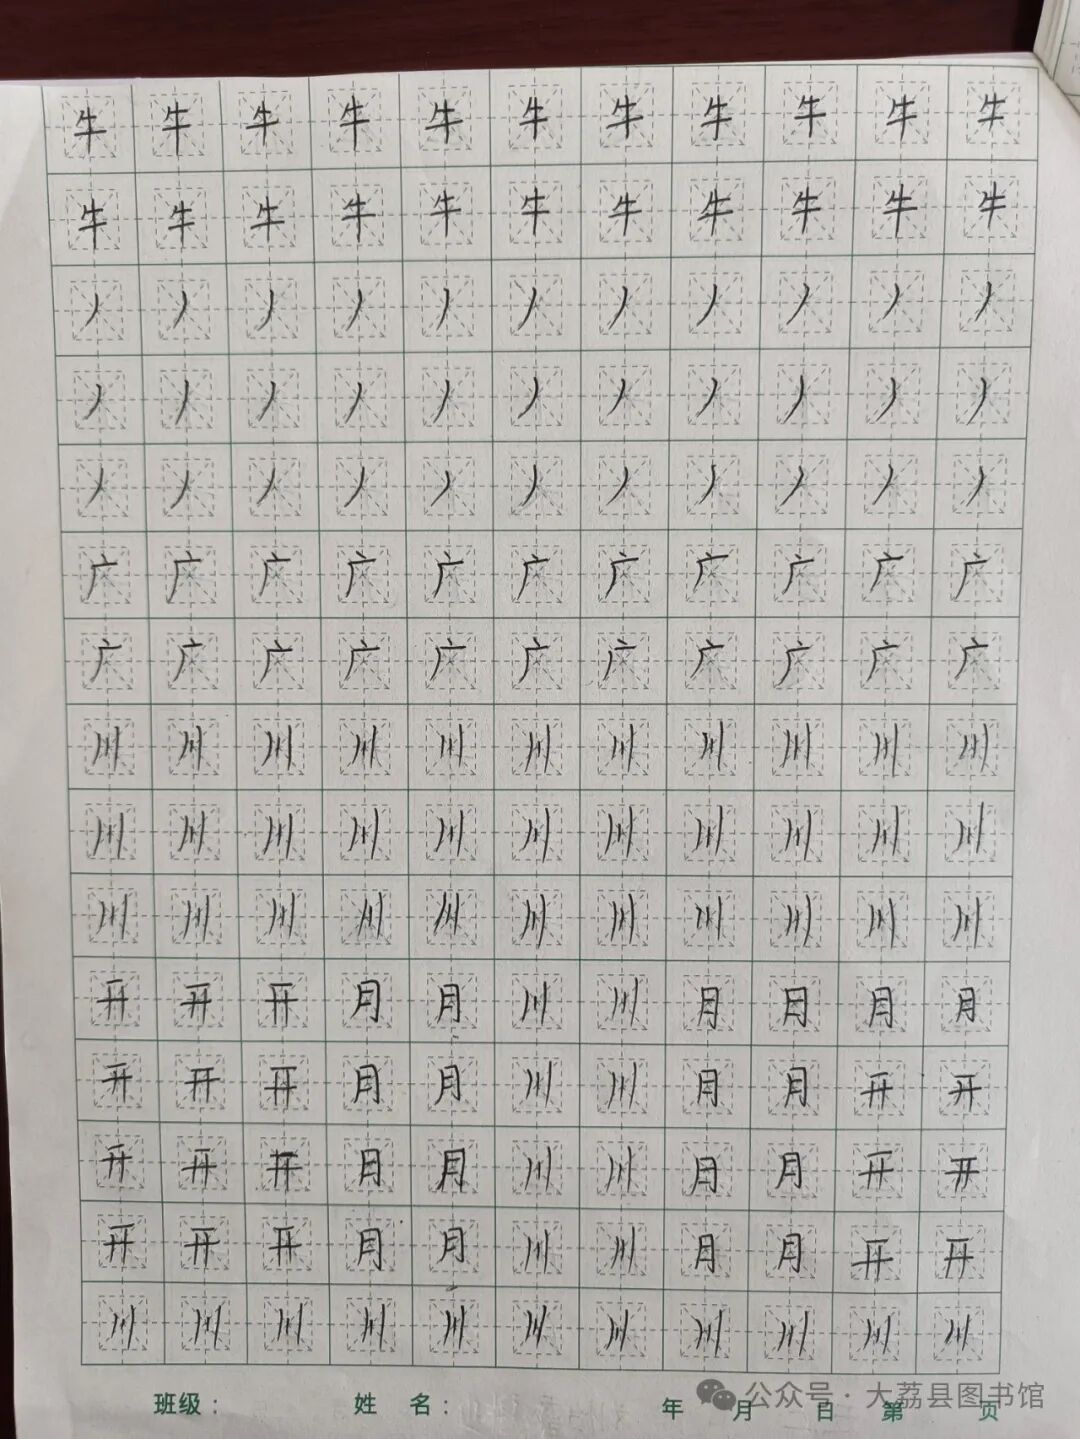 牛牛牛牛牛牛牛牛牛牛牛
牛牛牛牛牛牛牛牛牛牛牛
丿丿丿丿丿丿丿丿丿丿丿
丿丿丿丿丿丿丿丿丿丿丿
丿丿丿丿丿丿丿丿丿丿丿
广广广广广广广广广广广
广广广广广广广广广广广
川川川川川川川川川川川
川川川川川川川川川川川
川川川川川川川川川川川
开开开月月川川月月月月
开开开月月川川月月开开
开开开月月川川月月开开
开开开月月川川月月开开
川川川川川川川川川川川
班级： 姓 名： 年 月 日 第 页
公众号·大荔县图书馆